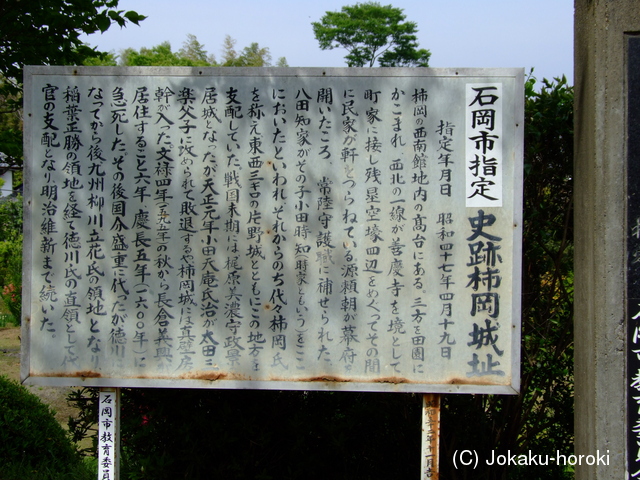 石岡市指定 史跡柿岡城址
指定年月日 昭和四十七年四月十九日
柿岡の西南館地内の高台にある。三方を田園に
かこまれ、西北の一線が善慶寺を境として
町家に接し残星空壕四辺をめぐってその間
に民家が軒をつらねている源頼朝が幕府を
開いたころ、常陸守護職に補せられた
八田知家がその子小田時知(時家ともいう)をここ
においたといわれそれからのち代々柿岡氏
を称え東西三キロの片野城とともにこの地方を
支配していた。戦国末期には梶原美濃守政景
居城となったが天正元年小田天庵氏治が太田三
楽父子に攻められて敗退するや柿岡城には真壁房
幹が入った文禄四年(一五九五年)の秋から長倉義興
居住すること六年、慶長五年(一六〇〇年)に
急死した。その後国分盛重に代ったが徳川に
なってから後九州柳川立花氏の領地となり
稲葉正勝の領地を経て徳川氏の直領として代
官の支配となり明治維新まで続いた。
石岡市教育委員
十一月
(C) Jokaku-horoki